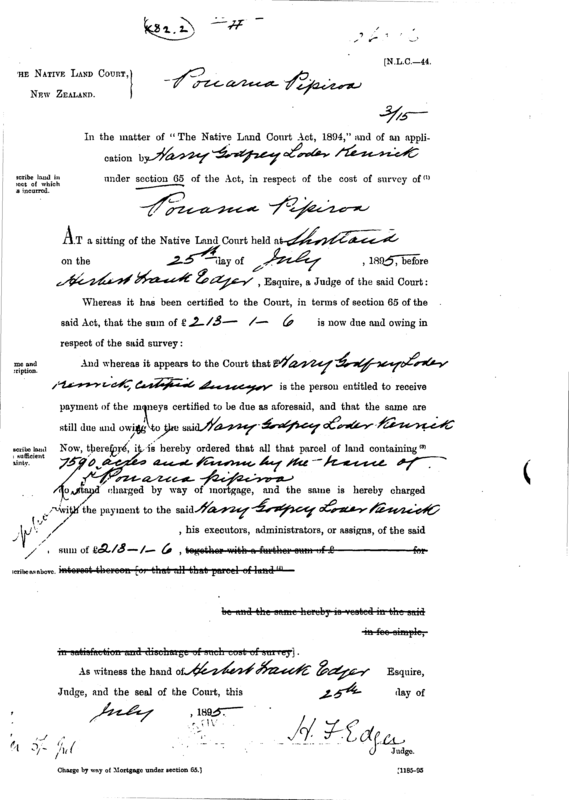 K82.2 H
[N.L.C.—44.
HE NATIVE LAND COURT,
NEW ZEALAND.
Pouarua Pipiroa
3/15
In the matter of "The Native Land Court Act, 1894," and of an appli-
cation by Harry Godfrey Loder Kenrick
scribe land in
cost of which
a incurred.
under section 65 of the Act, in respect of the cost of survey of (1)
Pouarua Pipiroa
AT a sitting of the Native Land Court held at Shortland
on the 25th day of July, 1895, before
Herbert Frank Edger, Esquire, a Judge of the said Court:
Whereas it has been certified to the Court, in terms of section 65 of the
said Act, that the sum of £213-1-6 is now due and owing in
respect of the said survey:
me and
ription.
And whereas it appears to the Court that Harry Godfrey Loder
Kenrick, Certified Surveyor is the person entitled to receive
payment of the moneys certified to be due as aforesaid, and that the same are
still due and owing to the said Harry Godfrey Loder Kenrick
scribe land
sufficient
ainty.
Now, therefore, it is hereby ordered that all that parcel of land containing (2)
7590 acres and known by the name of
Pouarua Pipiroa
to stand charged by way of mortgage, and the same is hereby charged
with the payment to the said Harry Godfrey Loder Kenrick
, his executors, administrators, or assigns, of the said
sum of £213-1-6, together with a further sum of £ for
scribe as above.
interest thereon [or that all that parcel of land
be and the same hereby is vested in the said
in fee-simple,
in satisfaction and discharge of such cost of survey].
As witness the hand of Herbert Frank Edger Esquire,
Judge, and the seal of the Court, this 25th day of
July, 1895.
H. F. Edger
Judge.
Charge by way of Mortgage under section 65.]
[1185-95